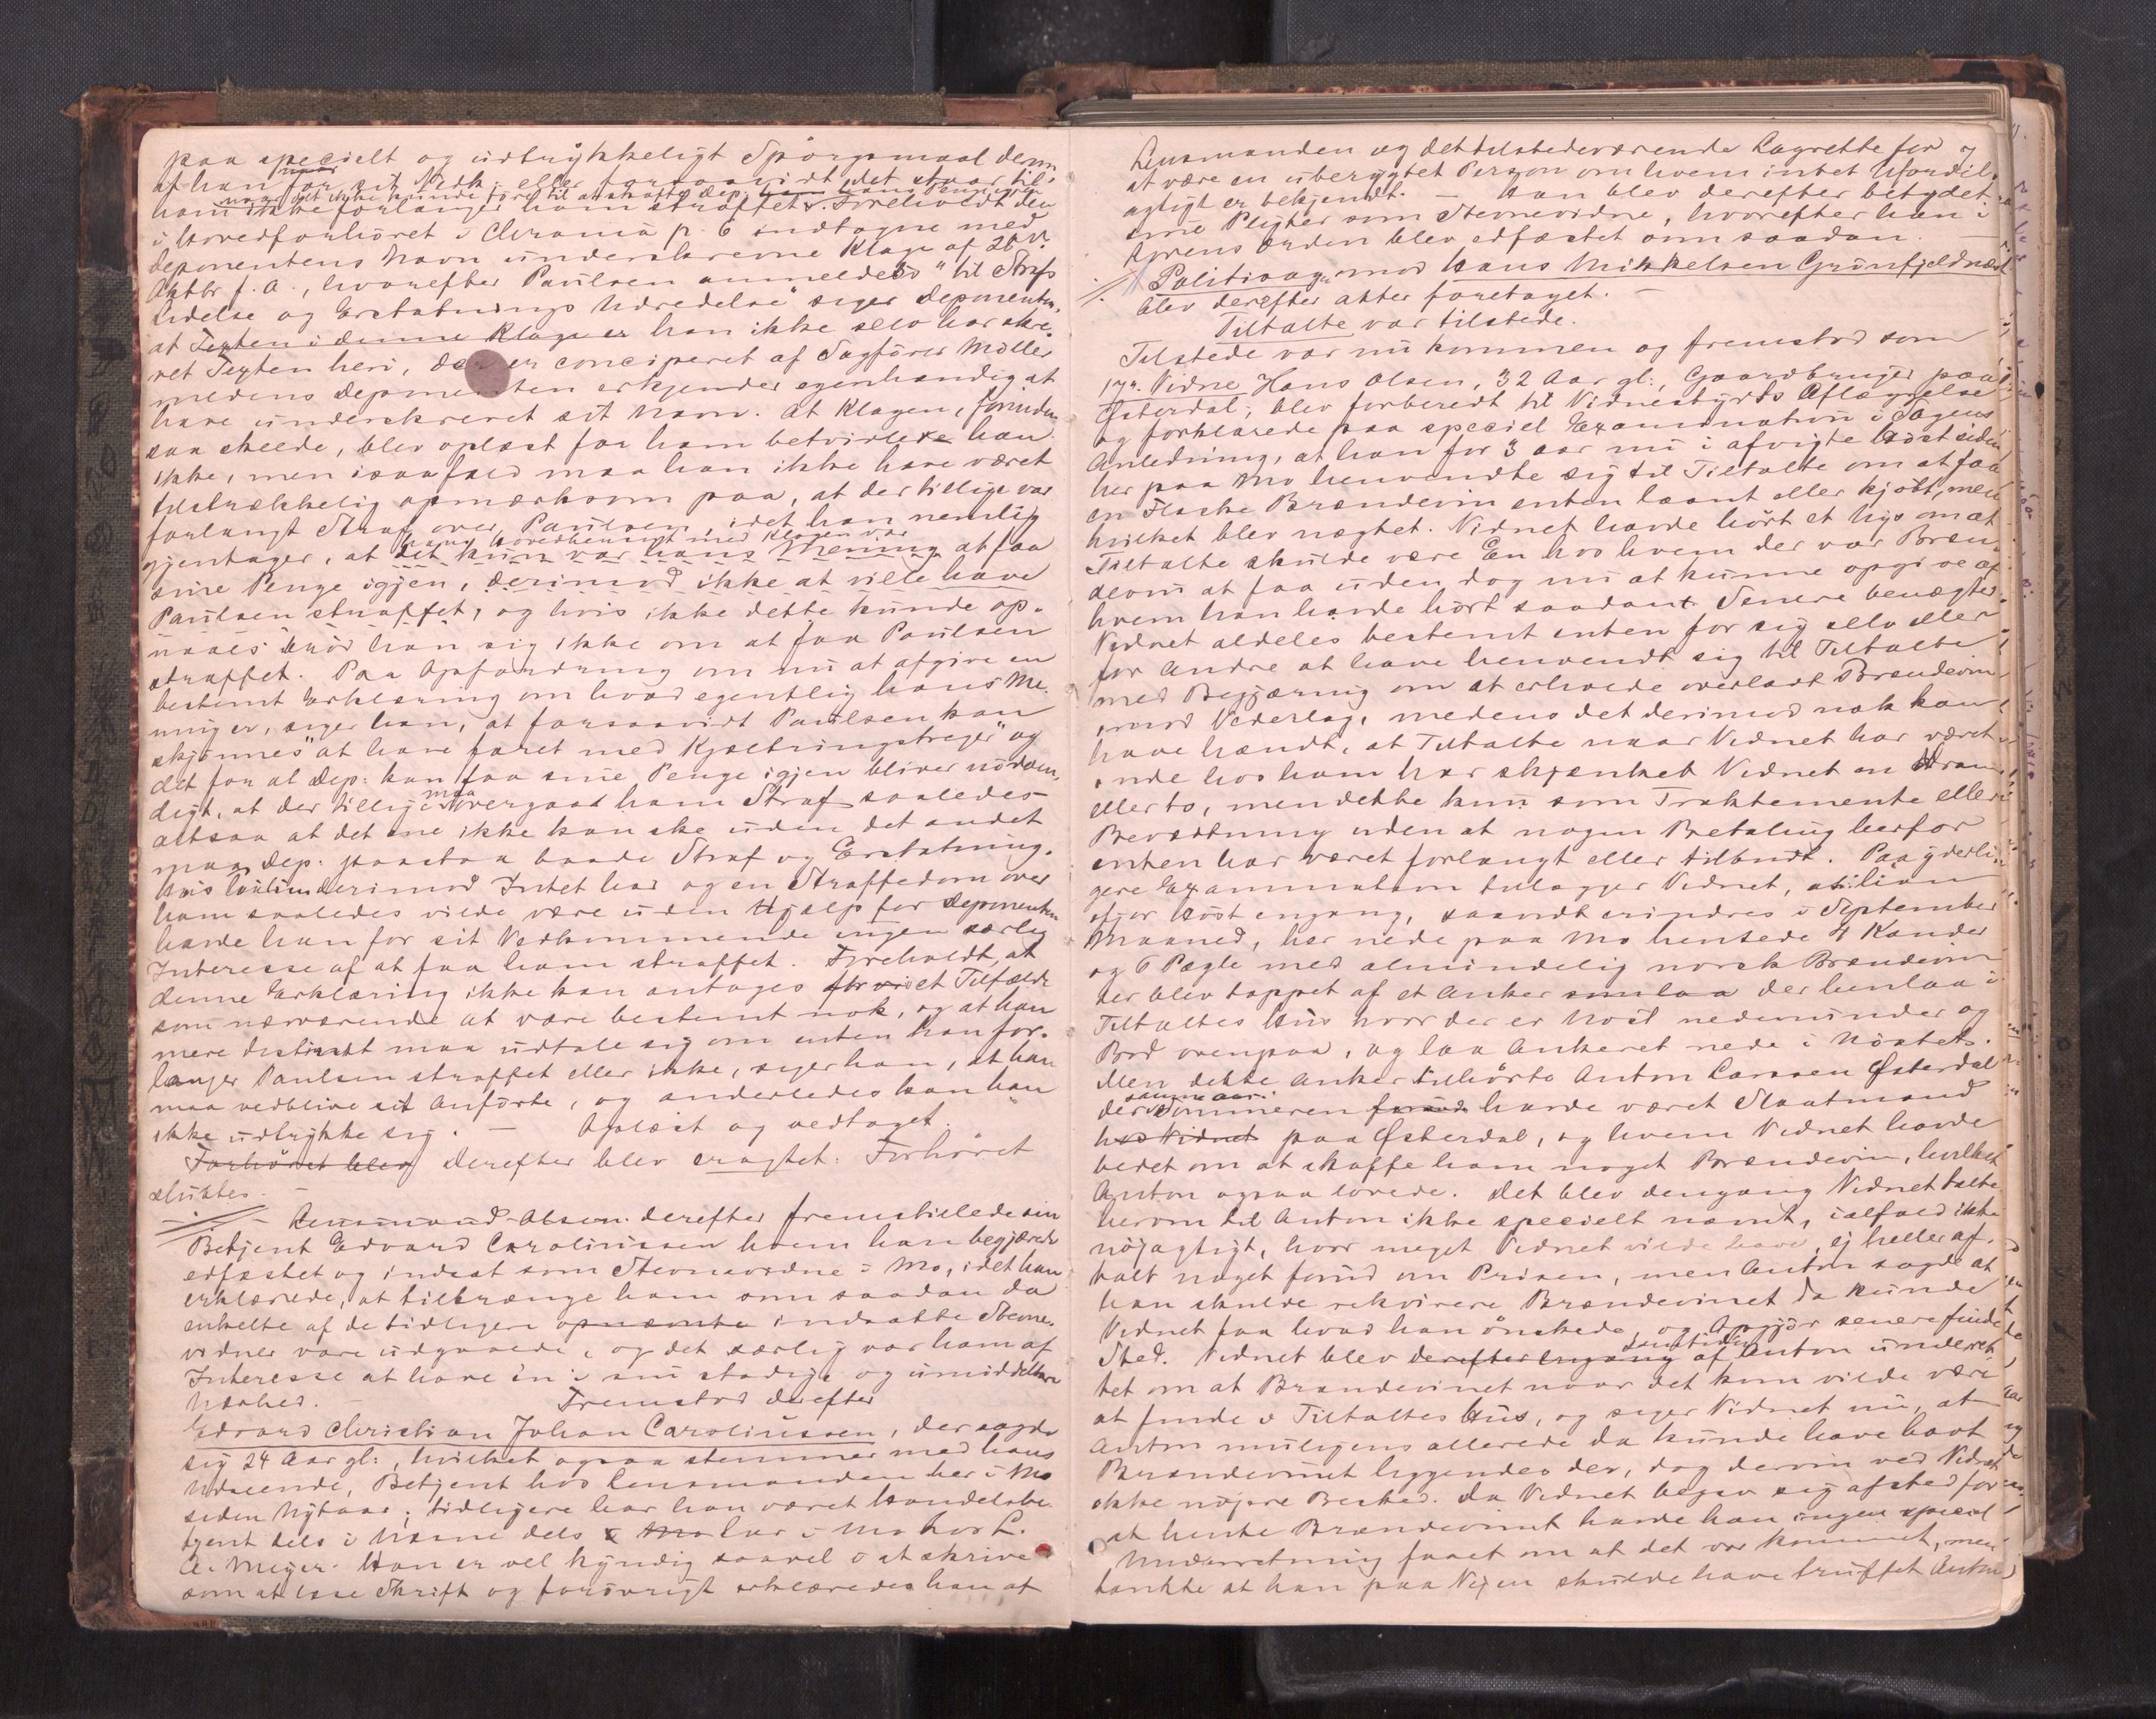 paa specielt og udtrykkeligt Spörgsmaal derom
af han for sit Vedk: eller forsaavidt det staar til
naar det ikke kunde före til at skaffe Dep: hans Penge igjen
ham ikke forlanger ham straffet. Foreholdt den
i Hovedforhöret i Chrania p. 6 indtagne med
Deponentens Navn underskrevne Klage af 28de
Oktbr f. A., hvorefter Paulsen anmeldes "til Strafs
Lidelse og Erstatnings Udredelse" siger Deponenten,
at Texten i denne Klage er han ikke selv har skre-
vet Texten heri, der er conciperet af Sagförer Möller
medens Deponenten erkjender egenhændig at
have underskrevet sit Navn. At Klagen, forinden
saa skeede, blev oplæst for ham betvivler han
ikke, men isaafald maa han ikke have været
tilstrækkelig opmærksom paa, at der tillige var
forlangt Straf over Paulsen, idet han nemlig
hans Hovedhensigt med Klagen var
gjentager, at det kun var hans Mening at faa
sine Penge igjen, derimod ikke at ville have
Paulsen straffet, og hvis ikke dette kunde op-
naaes bröd han sig ikke om at faa Paulsen
straffet. Paa Opfordring om nu at afgive en
bestemt Erklæring om hvad egentlig hans Me-
ning er, siger han, at forsaavidt Paulsen kan
skjönnes "at have faret med Kjæltringstreger" og
det for at Dep: kan faa sine Penge igjen bliver nödven-
digt, at der tillige maa overgaa ham Straf saaledes
altsaa at det ene ikke kan ske uden det andet
maa Dep: paastaa baade Straf og Erstatning.
Hvis Paulsen derimod Intet har og en Straffedom over
ham saaledes vilde være uden Hjælp for Deponenten
havde han for sit Vedkommende ingen særlig
Interesse af at faa ham straffet. Foreholdt, at
denne Erklæring ikke kan antages for vi et Tilfælde
som nærværende at være bestemt nok, og at han
mere distinkt maa udtale sig om enten han for-
langer Paulsen straffet eller ikke, siger han, at han
maa vedblive sit Anförte, og anderledes kan han
ikke udtrykke sig. — Oplæst og vedtaget.
Forhöret blev Derefter blev eragtet: Forhöret
sluttes. —
— Lensmand Olsen derefter fremstillede sin
Betjent Edvard Caroliussen hvem han begjærede
edfæstet og indsat som Stevnevidne i Mo, idet han
erklærede, at tiltrænge ham som saadan da
enkelte af de tidligere opnævnte indsatte Stevne-
vidner vare udgaaede, og det særlig var ham af
Interesse at have én i sin stadige og umiddelbare
Nærhed. — Fremstod derefter
Edvard Christian Johan Caroliussen, der sagde
sig 24 Aar gl:, hvilket ogsaa stemmer med hans
Udseende, Betjent hos Lensmanden her i Mo
siden Nytaar; tidligere har han været Handelsbe-
tjent dels i Næsne dels i Mo her i Mo hos L.
A. Meyer. Han er vel kyndig saavel i at skrive
som at læse Skrift og forövrigt erklæredes han af
Lensmanden og det tilstedeværende Lagrette for
at være en uberygtet Person om hvem intet Ufordel-
agtigt er bekjendt. — Han blev derefter betydet
sine Pligter som Stevnevidne, hvorefter han i
Lovens Orden blev edfæstet som saadan. —
Politisag mod Hans Mikkelsen Grönfjeldnæs
blev derefter atter foretaget. —
Tiltalte var tilstede.
Tilstede var nu kommen og fremstod som
17de Vidne Hans Olsen, 32 Aar gl:, Gaardbruger paa
Østerdal, blev forberedt til Vidnesbyrds Aflæggelse
og forklarede paa speciel Examination i Sagens
Anledning, at han for 3 Aar nu i afvigte Höst siden
her paa Mo henvendte sig til Tiltalte om at faa
en Flaske Brændevin enten laant eller kjöbt, men
hvilket blev nægtet. Vidnet havde hört et Nys om at
Tiltalte skulde være En hos hvem der var Bræn-
devin at faa uden dog nu at kunne opgive af
hvem han havde hört saadant. Senere benægter
Vidnet aldeles bestemt enten for sig selv eller
for Andre at have henvendt sig til Tiltalte
med Begjæring om at erholde overladt Brændevin
imod Vederlag, medens det derimod nok kan
have hændt, at Tiltalte naar Vidnet har været
inde hos ham har skjænket Vidnet en Dram
eller to, men dette kun som Traktemente eller
Bevertning uden at nogen Betaling herfor
enten har været forlangt eller tilbudt. Paa yderli-
gere Examination tillægger Vidnet, at han
ifjor Höst engang, saavidt erindres i September
Maaned, her nede paa Mo hentede 4 Kander
og 6 Pægle med almindelig norsk Brændevin
der blev tappet af et Anker som laa der henlaa i
Tiltaltes Hus hvor der er Nöst nedenunder og
Bod ovenpaa, og laa Ankeret nede i Nöstet.
Men dette Anker tilhörte Anton Larssen Østerdal
samme Aar
der Sommeren forud havde været Slaatmand
hos Vidnet paa Østerdal, og hvem Vidnet havde
bedet om at skaffe ham noget Brændevin, hvilket
Anton ogsaa lovede. Det blev dengang Vidnet talte
herom til Anton ikke specielt nævnt, ialfald ikke
nöjagtigt, hvor meget Vidnet vilde have, ej heller af-
talt noget forud om Prisen, men Anton sagde at
han skulde rekvirere Brændevinet da kunde
Vidnet faa hvad han önskede, og Opgjör senere finde
Sted. Vidnet blev derefter engang af Anton underret-
tet om at Brændevinet naar det kom vilde være
at finde i Tiltaltes Hus, og siger Vidnet nu, at
Anton muligens allerede da kunde have havt
Brændevinet liggende der, dog derom ved Vidnet
ikke nöjere Besked. Da Vidnet begav sig afsted for
at hente Brændevinet havde han ingen speciel
Underretning faaet om at det var kommet, men
tænkte at han paa Vejen skulde have truffet Anton